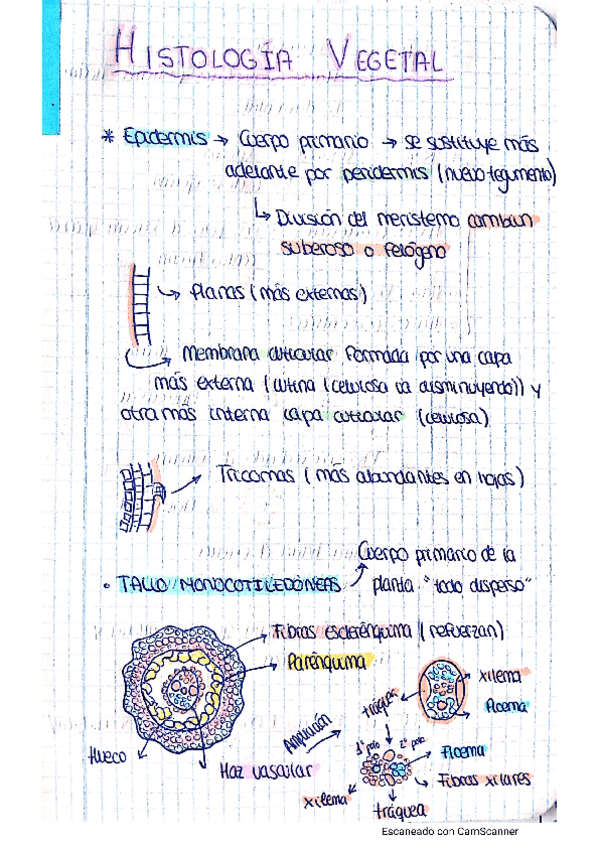 HISTOLOGÍA VEGETAL
* Epidermis → Cuerpo primario → se sustituye más
adelante por peridermis (nuevo tegumento)
↳ División del meristemo cambium
suberoso o felógeno
↳ Planas (más externas)
Membrana cuticular formada por una capa
más externa (cutina (celulosa va disminuyendo)) y
otra más interna capa cuticular (celulosa)
→ Tricomas (más abundantes en hojas)
• TALLO MONOCOTILEDÓNEAS
Cuerpo primario de la
planta "todo disperso"
Fibras esclerénquima (refuerzan)
Parénquima
Hueco
Haz vascular
Xilema
Floema
tráquea
Ampliación
1º polo
2º polo
Floema
Fibras xilares
xilema
tráquea
Escaneado con CamScanner